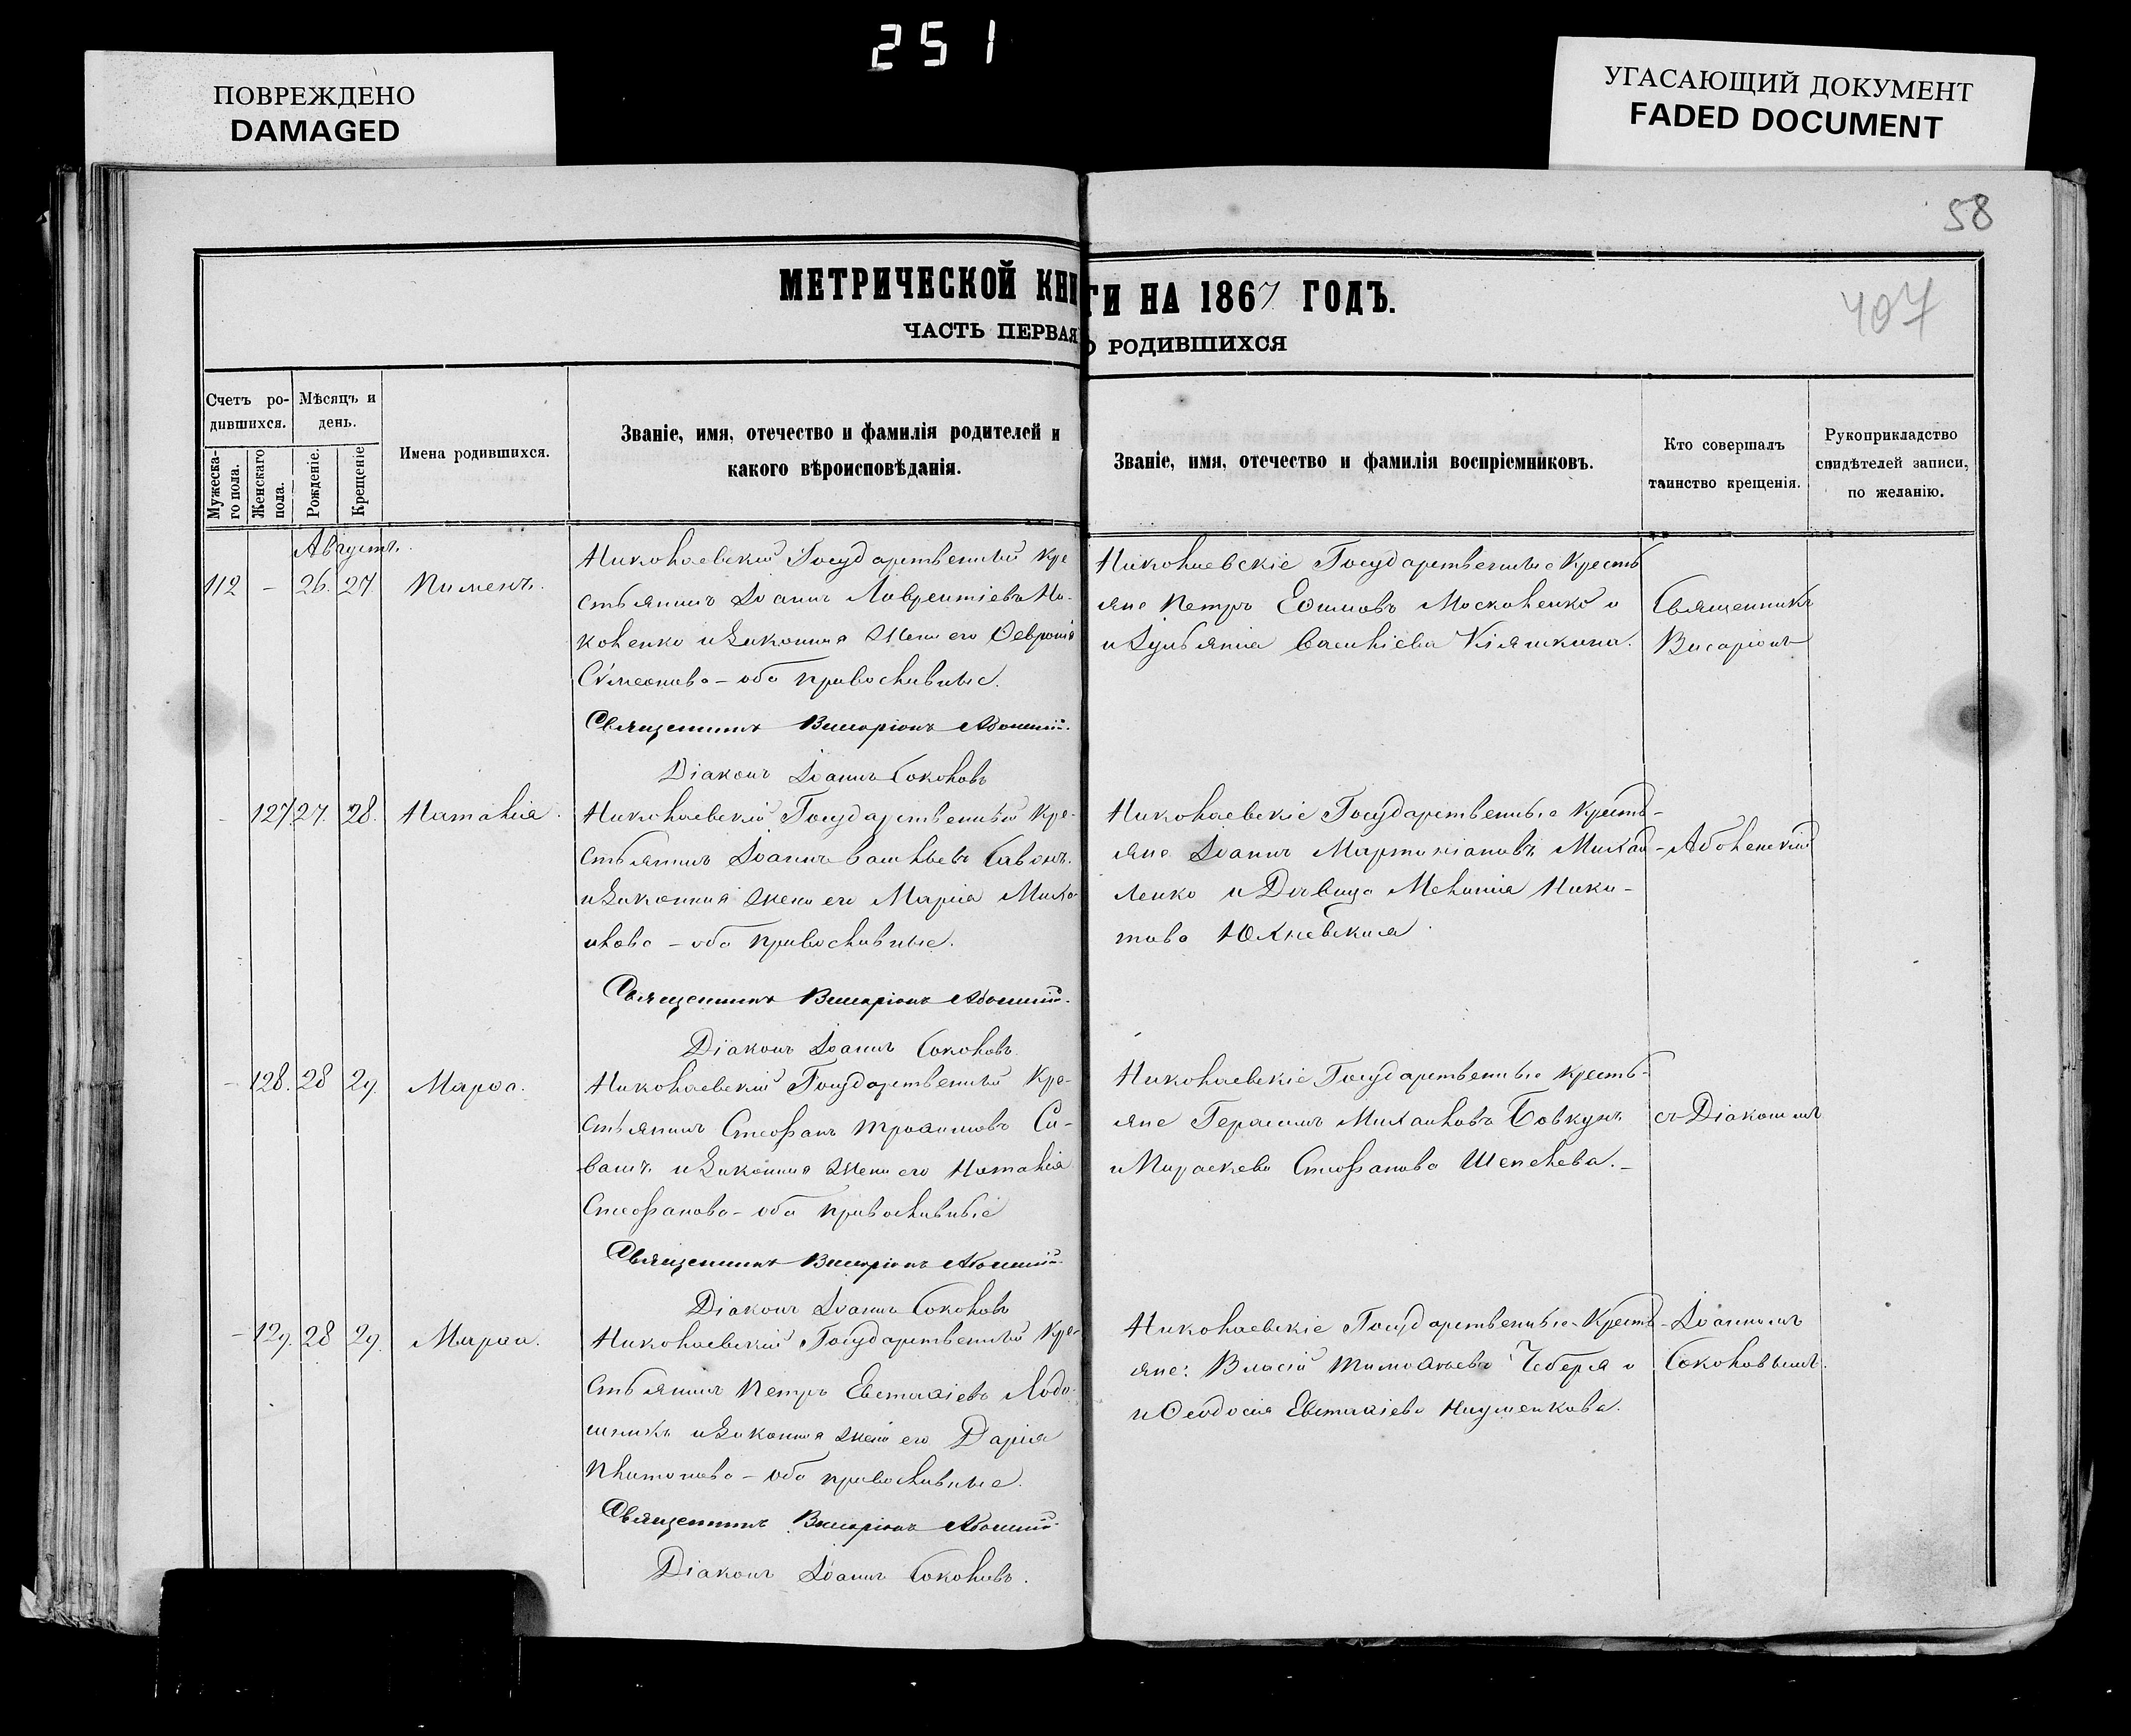 251
ПОВРЕЖДЕНО
DAMAGED
УГАСАЮЩИЙ ДОКУМЕНТ
FADED DOCUMENT
58
407
МЕТРИЧЕСКОЙ КНИГИ НА 1867 ГОДЪ.
ЧАСТЬ ПЕРВАЯ О РОДИВШИХСЯ
Счетъ ро-
дившихся.
Мужеска-
го пола.
Женскаго
пола.
Мѣсяцъ и
день.
Рожденіе.
Крещеніе
Имена родившихся.
Званіе, имя, отечество и фамилія родителей и
какого вѣроисповѣданія.
Званіе, имя, отечество и фамилія воспріемниковъ.
Кто совершалъ
таинство крещенія.
Рукоприкладство
свидѣтелей записи,
по желанію.
Августъ.
112 – 26. 27 Пименъ.
Николаевскій Государственный Кре
стьянинъ Іоаннъ Лаврентіевъ Но-
коленко и законная жена его Ѳевронія
Сѵмеонова – оба православные.
Священникъ Виссаріонъ
Діаконъ Іоаннъ Соколовъ
Николаевскіе Государственные Кресть
яне Петръ Еѳимовъ Московенко и
и Іуліанія Васильева Кіяшкина.
Священникъ
Висаріонъ
– 127. 27. 28. Наталія.
Николаевскій Государственный Кре-
стьянинъ Іоаннъ Васильевъ Савонъ.
и законная жена его Марія Миха
илова – оба православные.
Священникъ Виссаріонъ
Діаконъ Іоаннъ Соколовъ.
Николаевскіе Государственные Кресть-
яне Іоаннъ Мартиніановъ Михай-
ленко и Дѣвица Меланія Ники-
това Юхневская.
Аболенскій
– 128. 28 29. Марѳа.
Николаевскій Государственный Кре-
стьянинъ Стефанъ Троѳимовъ Си-
вашъ и законная жена его Наталія
Стефанова – оба православные
Священникъ Виссаріонъ
Діаконъ Іоаннъ Соколовъ
Николаевскіе Государственные кресть-
яне Герасимъ Михаиловъ Бовкунъ
и Параскева Стефанова Шепелева. –
съ Діакономъ
– 129. 28 29. Марѳа.
Николаевскій Государственный Кре-
стьянинъ Петръ Евстаѳіевъ Лобо-
и законная жена его Дарія
Платонова – оба православные.
Священникъ Виссаріонъ
Діаконъ Іоаннъ Соколовъ.
Николаевскіе Государственные Кресть-
яне: Власій Тимоѳеевъ Чеберя и
и Ѳеодосія Евстаѳіева Науменкова.
Іоанномъ
Соколовымъ.